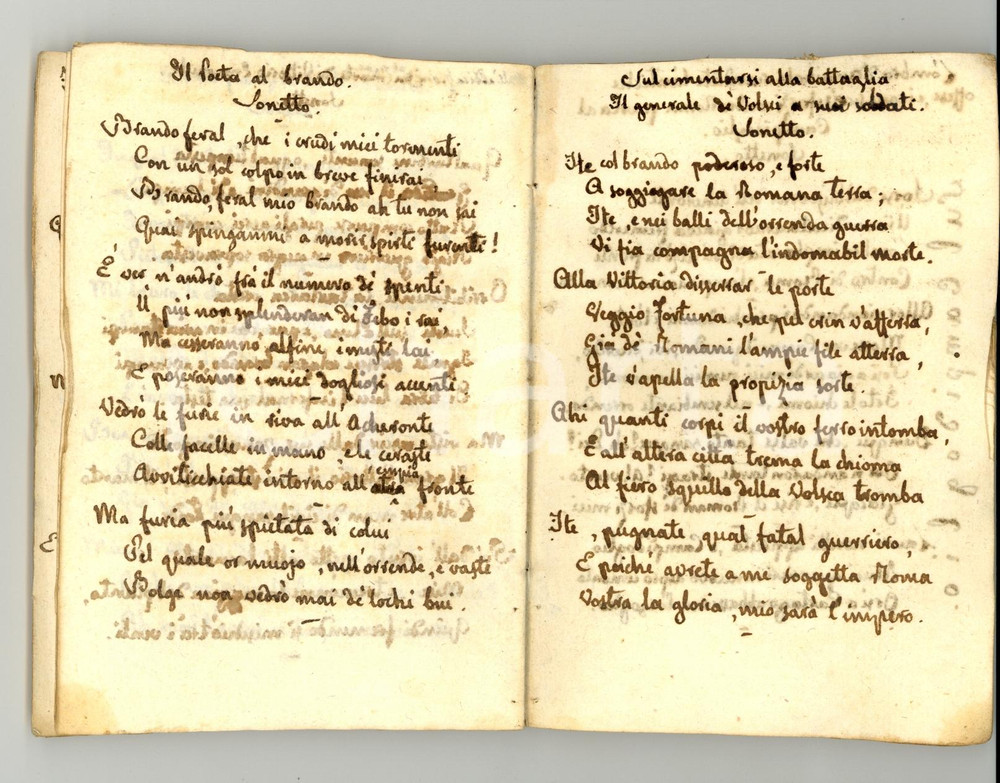 Il Poeta al brando.
Sonetto.
Brando feral, che i crudi miei tormenti
Con un sol colpo in breve finirai
Brando, feral mio brando ah tu non sai
Quai spingammi a morir spirti furenti!
È ver n'andrò frà il numero de' spenti
U' più non splenderan di Febo i rai,
Ma cesseranno alfine i mesti lai
E poseranno i miei dogliosi accenti
Vedrò le furie in riva all'Acheronte
Colle facelle in mano, e le ceraste
Avviticchiate intorno all'empia fronte
Ma furia più spietata di colui
Pel quale or muojo, nell'orrende, e vaste
Bolge non vedrò mai de' lochi bui.
Sul cimentarsi alla battaglia
Il generale de' Volsci a suoi soldati.
Sonetto.
Ite col brando poderoso, e forte
A soggiogare la Romana terra;
Ite, e nei balli dell'orrenda guerra
Vi fia compagna l'indomabil morte.
Alla Vittoria disserrar le porte
Veggio Fortuna, che pel crin v'afferra,
Già de' Romani l'ampie file atterra,
Ite v'apella la propizia sorte.
Ahi quanti corpi il vostro ferro intomba,
E all'altera città trema la chioma
Al fiero squillo della Volsca tromba
Ite, pugnate, qual fatal guerriero,
E poiché avrete a me soggetta Roma
Vostra la gloria, mio sarà l'impero.